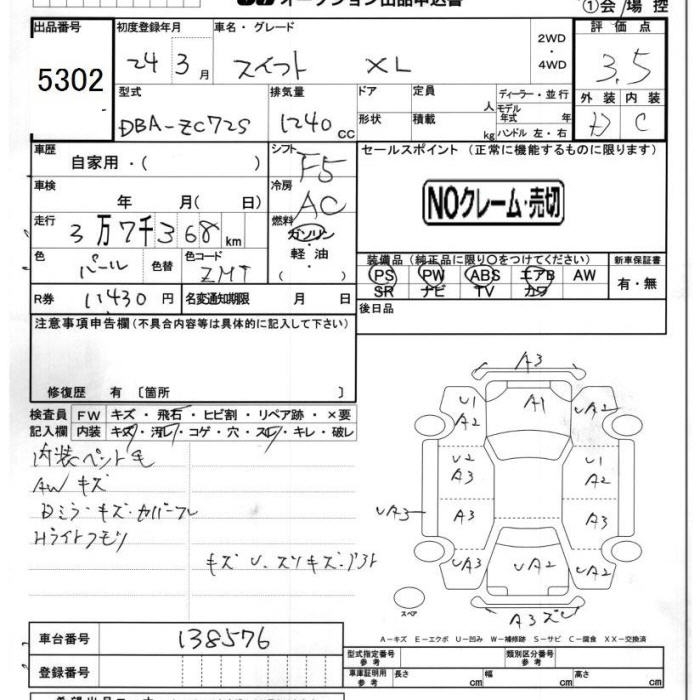 オークション出品申込書
①会場控
出品番号 初度登録年月 車名・グレード 評価点
5302 24 3月 スイフト XL 2WD・4WD 3.5
型式 排気量 ドア 定員 人 ディーラー・並行 外装 内装
DBA-ZC72S 1240cc 形状 積載 kg モデル年式 年 ハンドル 左・右 D C
車歴 自家用・( ) シフト F5 セールスポイント (正常に機能するものに限ります)
車検 年 月( 日) 冷房 AC NOクレーム・売切
走行 3万7千368km 燃料 ガソリン・軽油・( )
色 パール 色替 色コード ZMT
装備品 (純正品に限り○をつけてください) 新車保証書
PS PW ABS エアB AW 有・無
SR ナビ TV カワ
R券 11430円 名変通知期限 月 日 後日品
注意事項申告欄(不具合内容等は具体的に記入して下さい)
修復歴 有 〔箇所 〕
検査員 FW キズ・飛石・ヒビ割・リペア跡・×要
記入欄 内装 キズ・汚レ・コゲ・穴・スレ・キレ・破レ
AWキズ
キズ U
A3
U1 A1 UA2
A2
U2 U1
A3 A2
UA3 A3 A3
UA3 UA2 UA2
スペア
A3
A-キズ E-エクボ U-凹み W-補修跡 S-サビ C-腐食 XX-交換済
車台番号 138576
登録番号
型式指定番号 参考 類別区分番号 参考
車庫証明用 参考 長さ cm 幅 cm 高さ cm